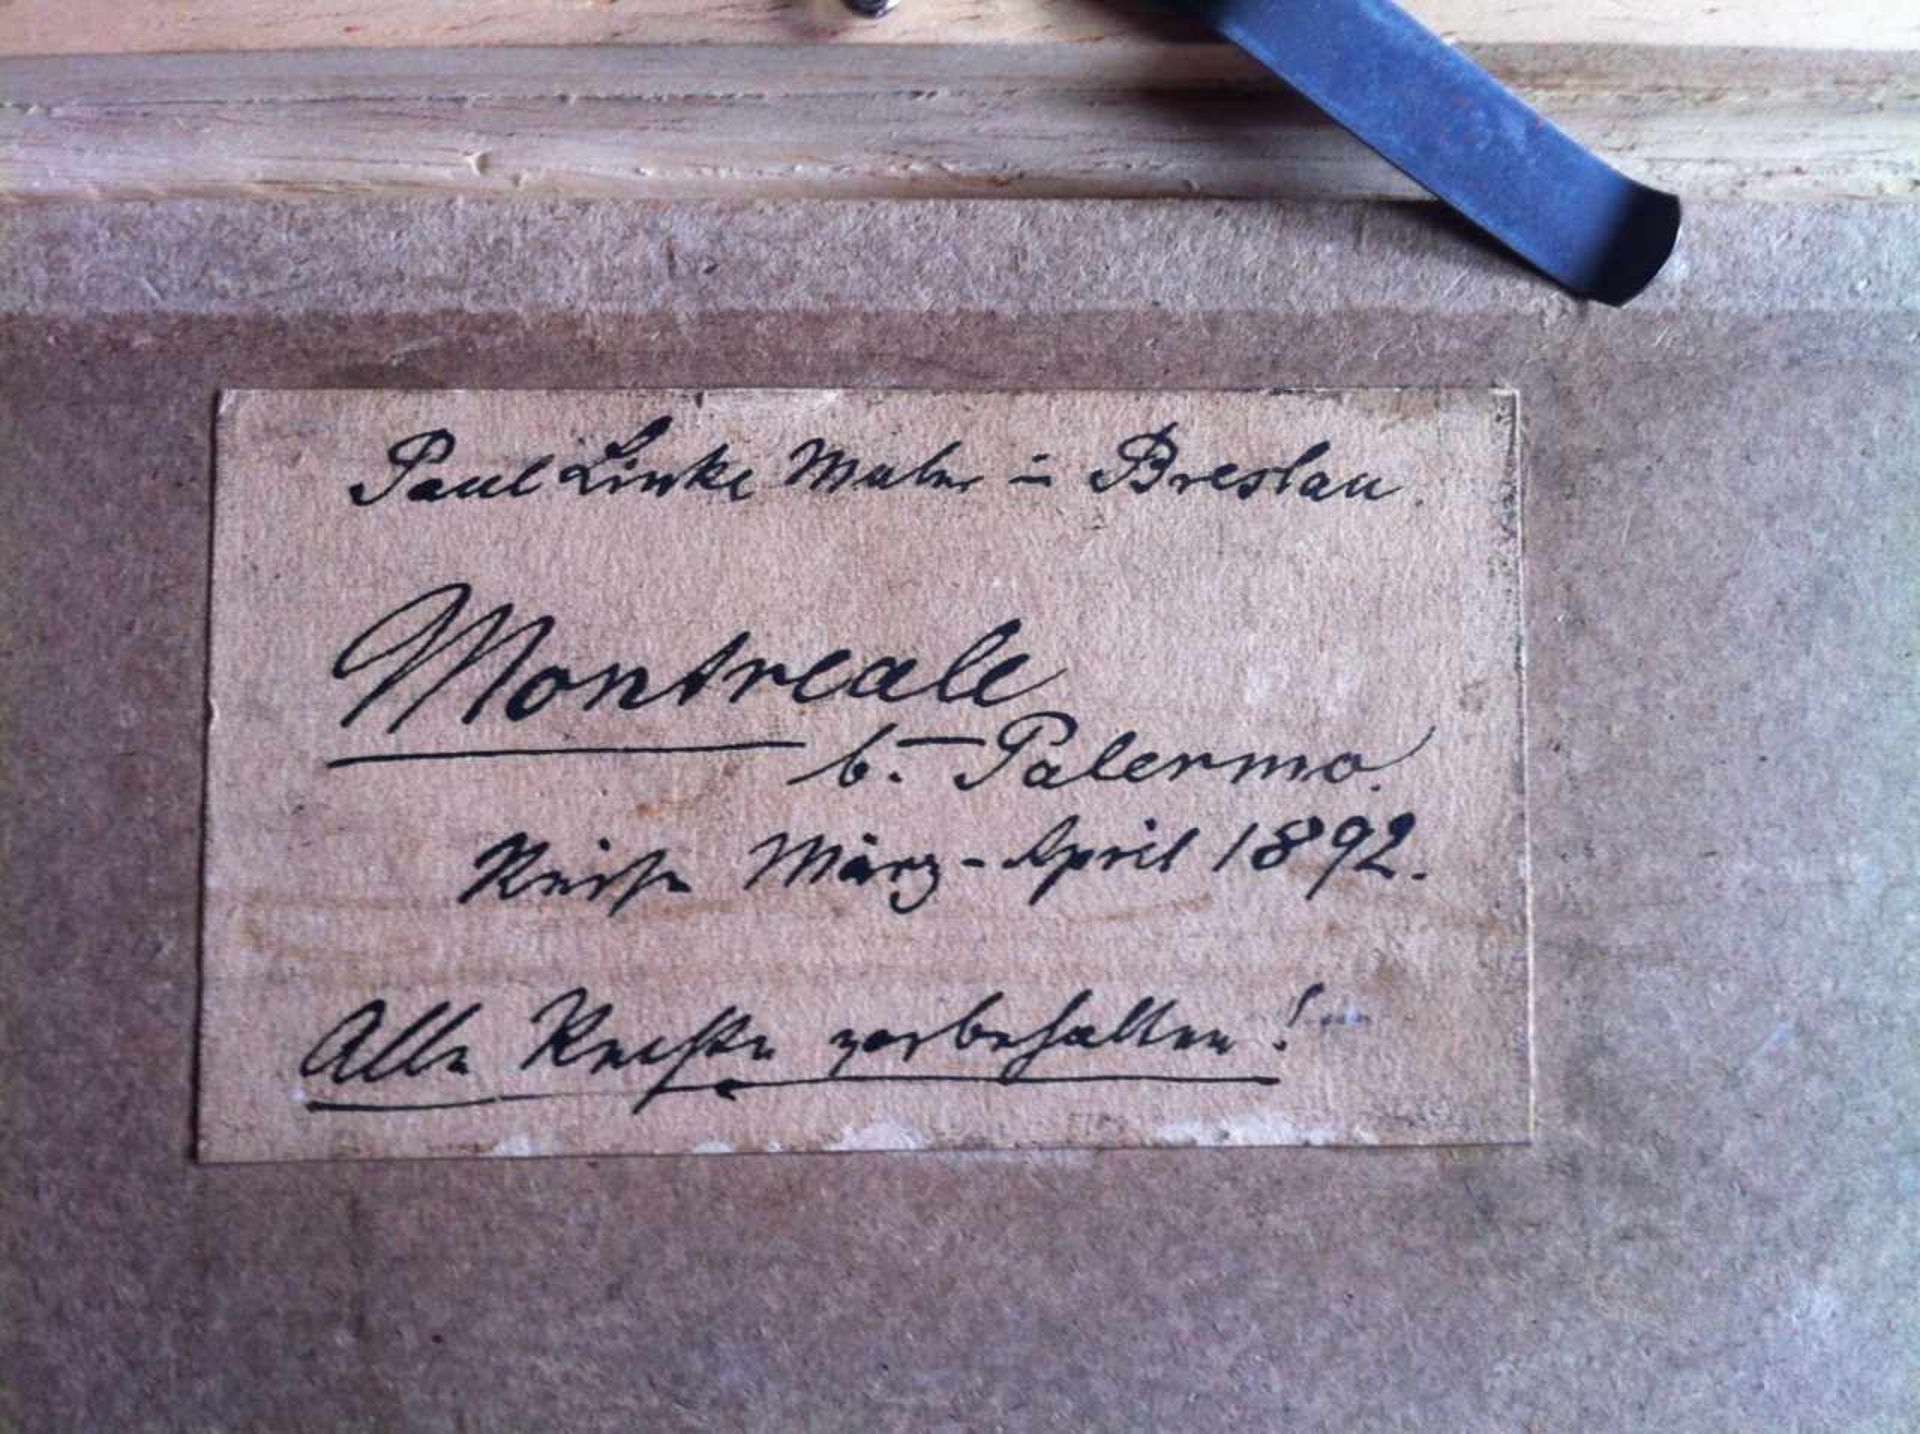 Paul Linke Maler in Breslau.
Montreale
b. Palermo.
Reise März - April 1892.
Alle Rechte vorbehalten!